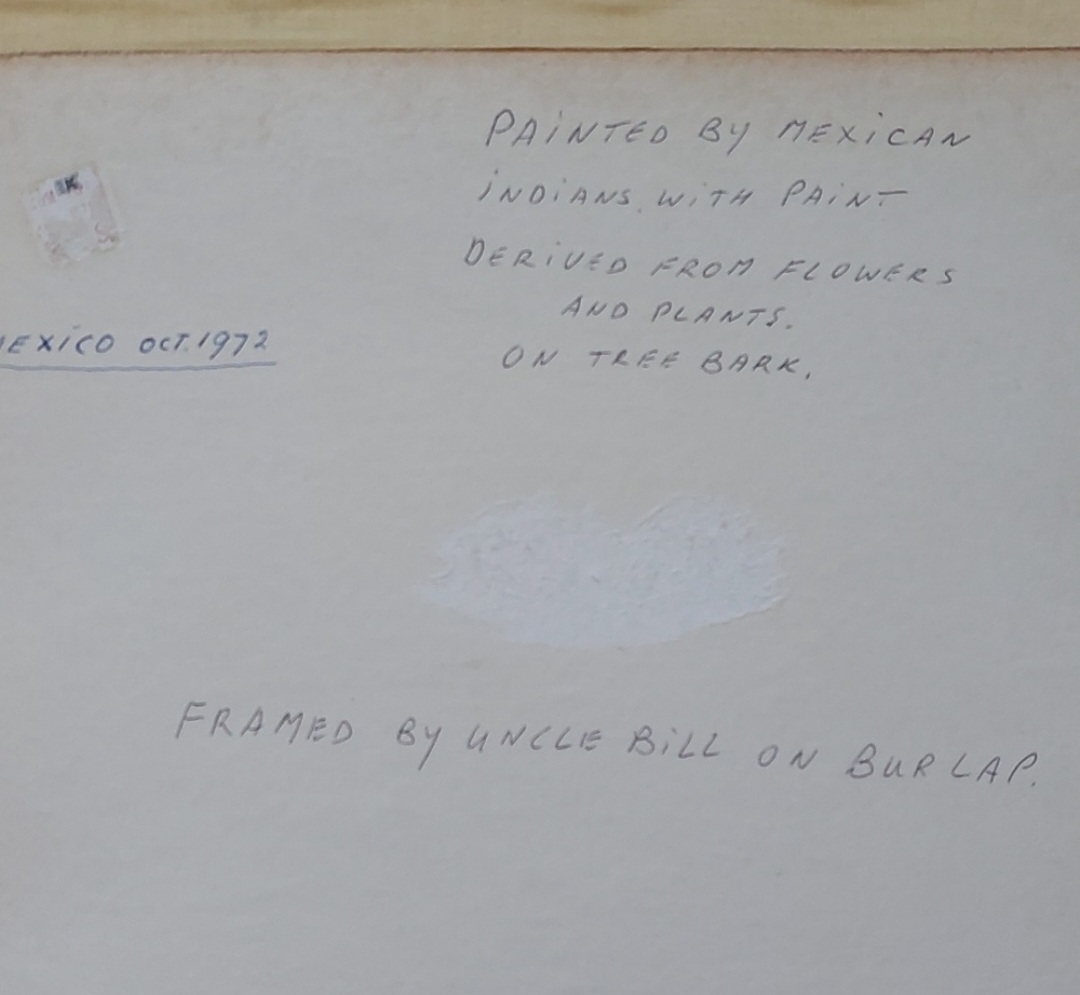 PAINTED BY MEXICAN
INDIANS. WITH PAINT
DERIVED FROM FLOWERS
AND PLANTS.
ON TREE BARK.
EXICO OCT. 1972
FRAMED BY UNCLE BILL ON BURLAP.